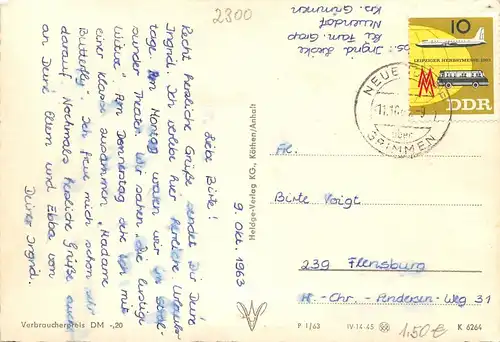 2300
Abs: Ingrid
bei Fam. Grap
Neuendorf
Krs. Grimmen
10
LEIPZIGER HERBSTMESSE 1963
DDR
NEUE
11.10.63-9
über
GRIMMEN
9. Okt. 1963
Liebe Birte!
Recht herzliche Grüße sendet Dir Deine
Ingrid. Ich verlebe hier herrliche Urlaubs-
tage. Am Montag waren wir im Stral-
sunder Theater. Wir sahen „Die lustige
Witwe". Am Donnerstag sehe ich mit
einer Klasse zusammen „Madame
Butterfly". Ich freue mich schon sehr
darauf. Nochmals herzliche Grüße auch
an Deine Eltern und Ebba von
Deiner Ingrid.
Heldge-Verlag KG., Köthen/Anhalt
Frl.
Birte Voigt
239 Flensburg
H.-Chr.-Andersen-Weg 31
Verbraucherpreis DM -,20
P 1/63
IV-14-45
1.50€
K 6264